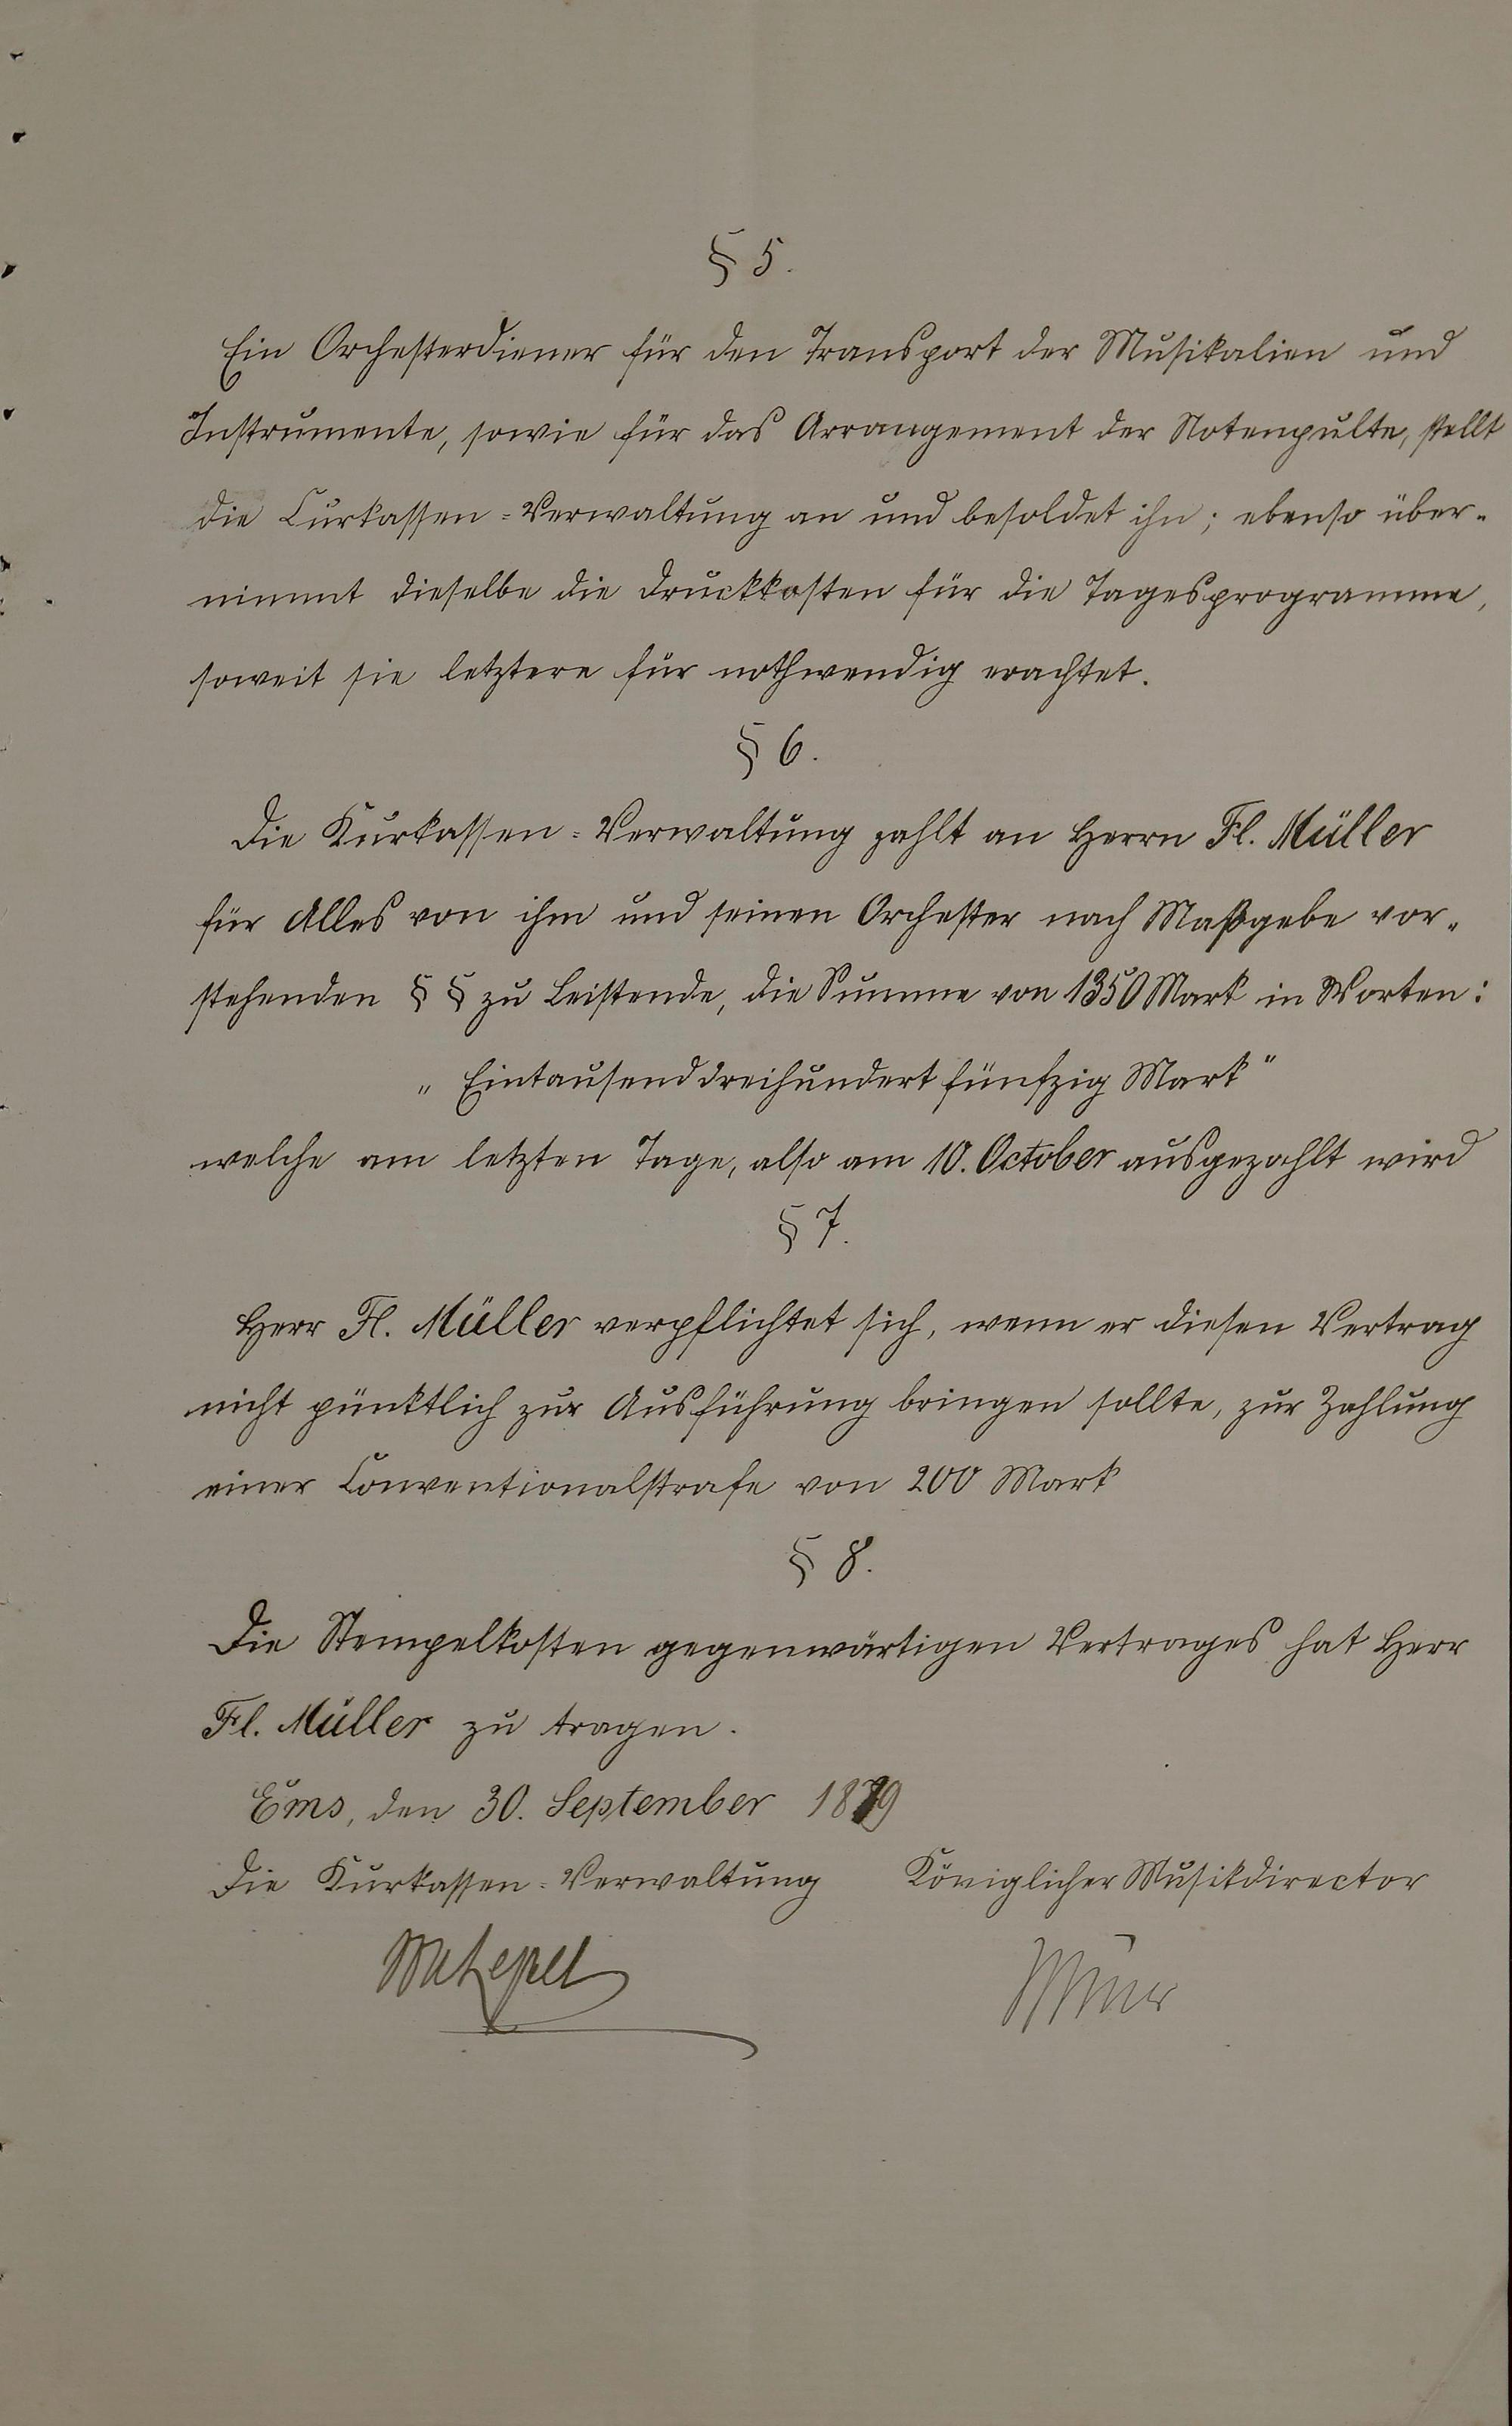 § 5.
Ein Orchesterdiener für den Transport der Musikalien und
Instrumente, sowie für das Arrangement der Notenpulte, stellt
die Curkassen-Verwaltung an und besoldet ihn; ebenso über-
nimmt dieselbe die Druckkosten für die Tagesprogramme,
soweit sie letztere für nothwendig erachtet.
§ 6.
Die Kurkassen-Verwaltung zahlt an Herrn Fl. Müller
für Alles von ihm und seinen Orchester nach Maßgebe vor-
stehenden § § zu Leistende, die Summe von 1350 Mark in Worten:
„Eintausenddreihundertfünfzig Mark"
welche am letzten Tage, also am 10. October ausgezahlt wird
§ 7.
Herr Fl. Müller verpflichtet sich, wenn er diesen Vertrag
nicht pünktlich zur Ausführung bringen sollte, zur Zahlung
einer Conventionalstrafe von 200 Mark
§ 8.
Die Stempelkosten gegenwärtigen Vertrages hat Herr
Fl. Müller zu tragen.
Ems, den 30. September 1879
Die Kurkassen-Verwaltung Königlicher Musikdirector